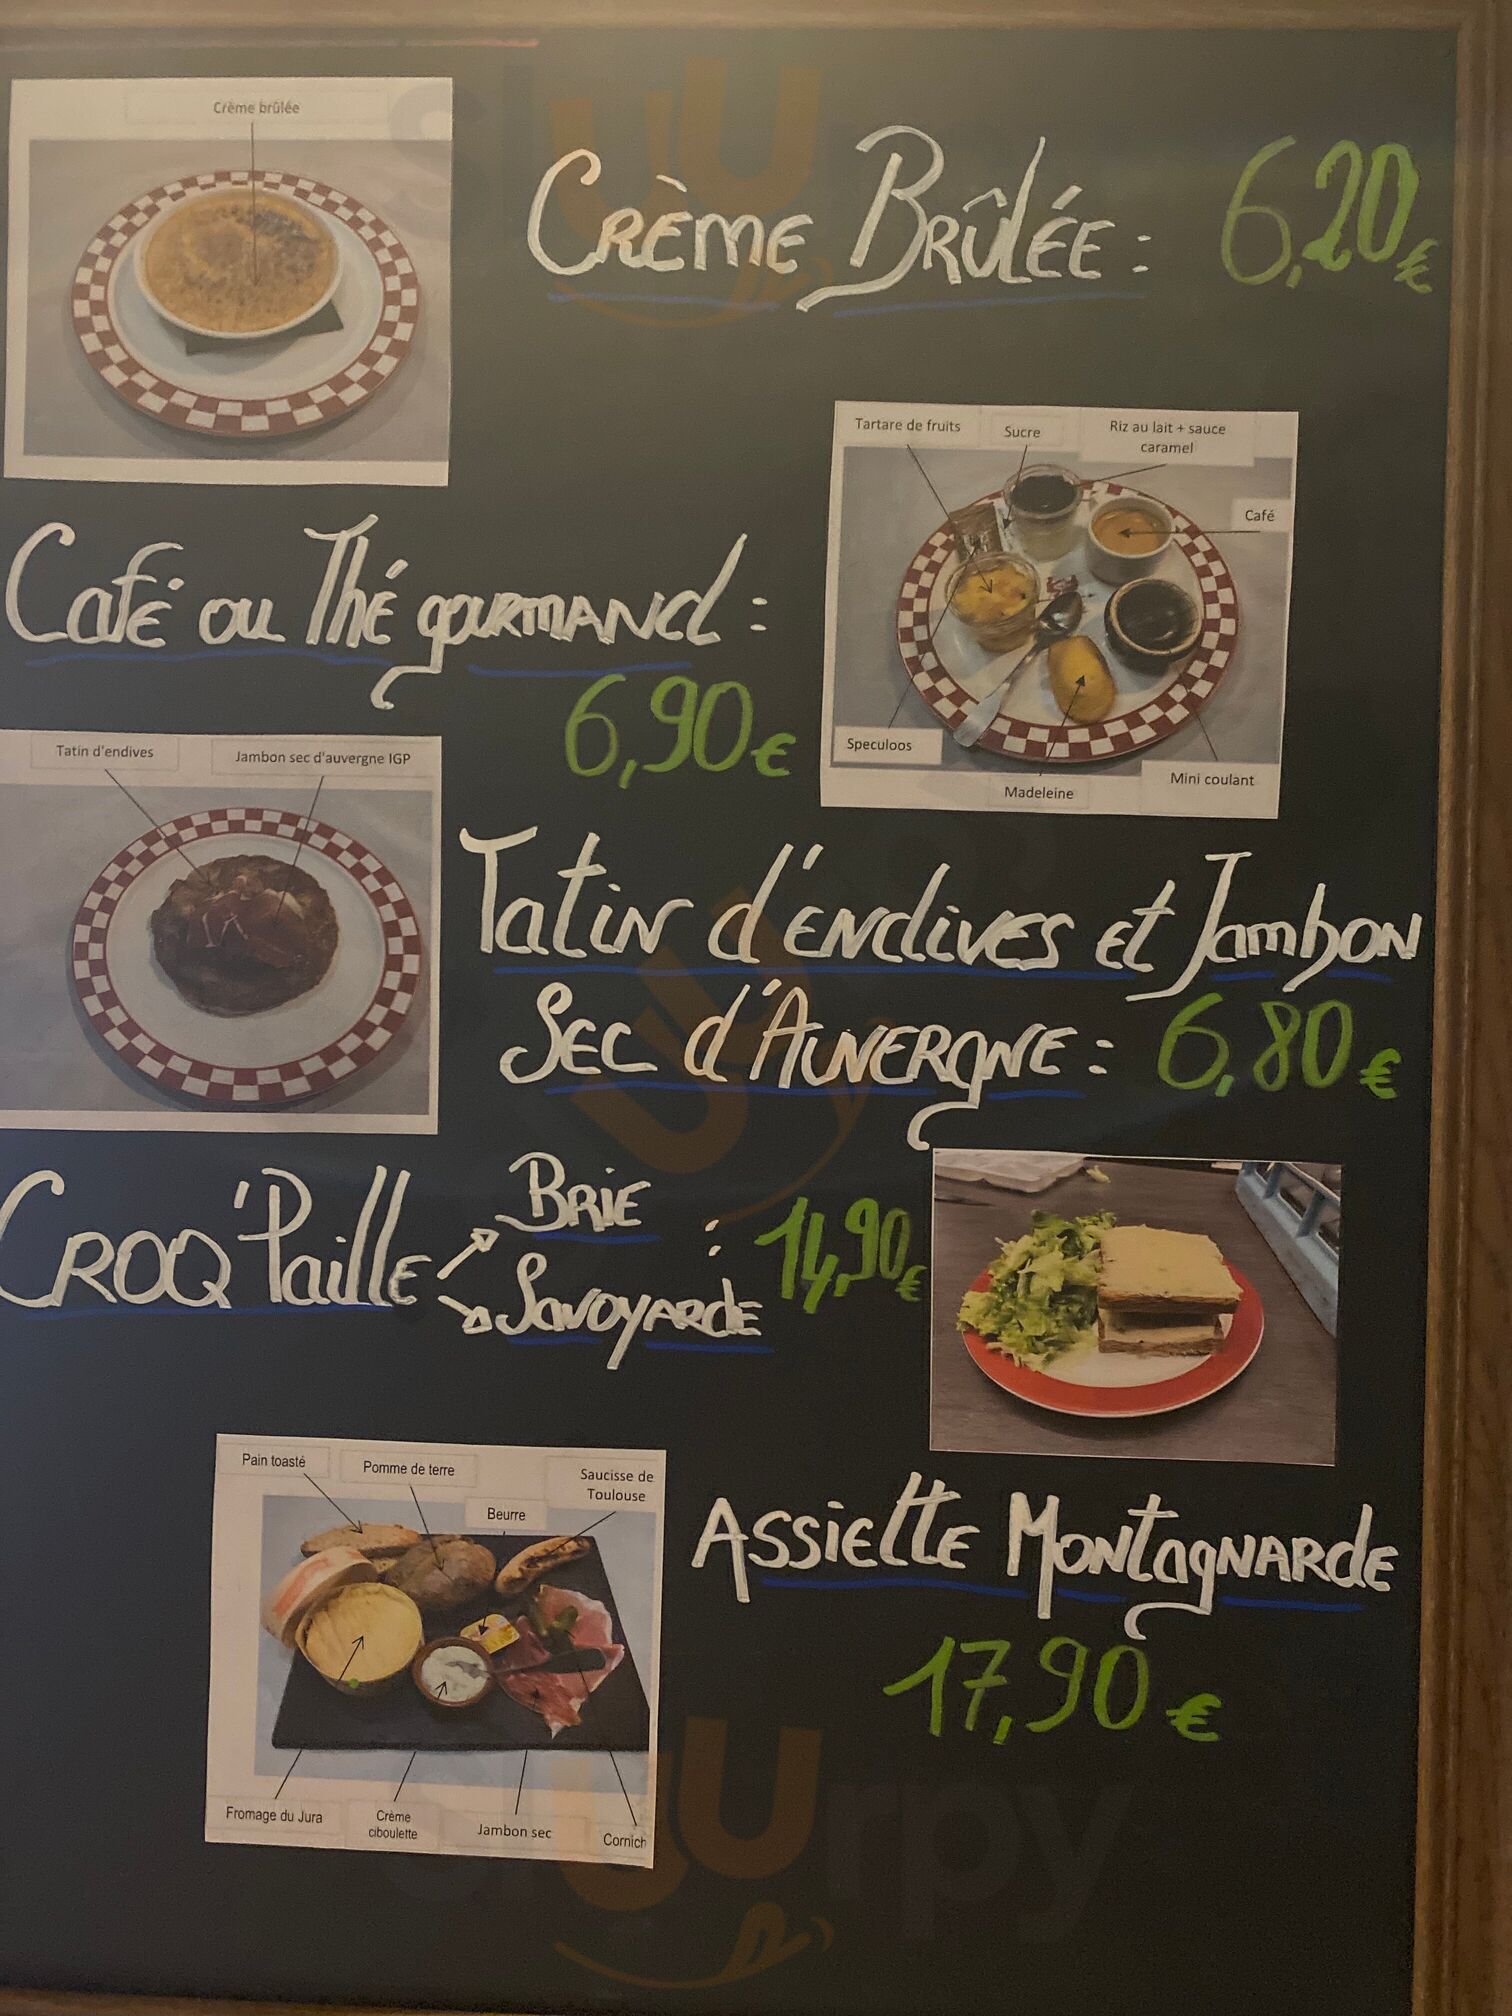 Crème brûlée
Crème Brûlée : 6,20€
Tartare de fruits
Sucre
Riz au lait + sauce
caramel
Café
Café ou Thé gourmand :
6,90€
Speculoos
Madeleine
Mini coulant
Tatin d'endives
Jambon sec d'auvergne IGP
Tatin d'endives et Jambon
Sec d'Auvergne : 6,80€
Croq'Paille
Brie
Savoyarde
: 14,90€
Pain toasté
Pomme de terre
Beurre
Saucisse de
Toulouse
Assiette Montagnarde
17,90€
Fromage du Jura
Crème
ciboulette
Jambon sec
Cornich
slurpy